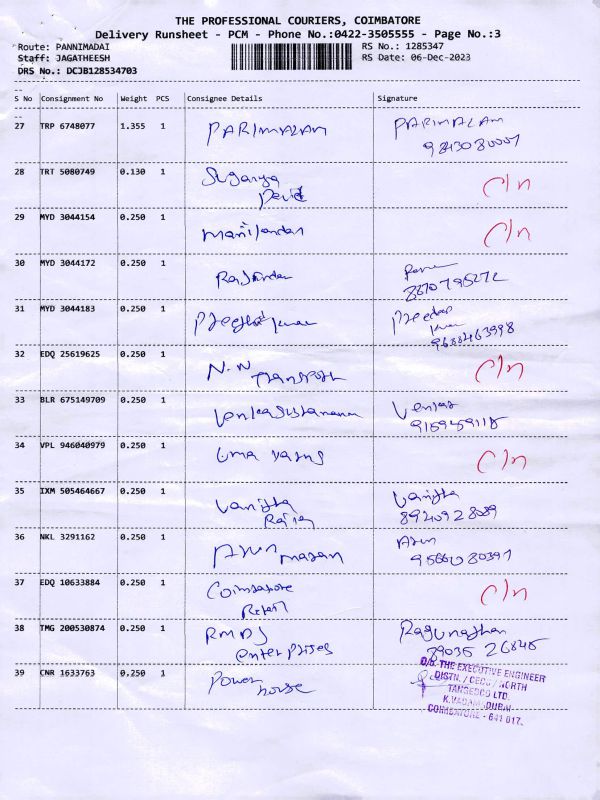 THE PROFESSIONAL COURIERS, COIMBATORE
Delivery Runsheet - PCM - Phone No.:0422-3505555 - Page No.:3
Route: PANNIMADAI RS No.: 1285347
Staff: JAGATHEESH RS Date: 06-Dec-2023
DRS No.: DCJB128534703
S No Consignment No Weight PCS Consignee Details Signature
27 TRP 6748077 1.355 1 PARIMALAM PARIMALAM
28 TRT 5080749 0.130 1 Suganya C/n
Devi
29 MYD 3044154 0.250 1 Manikandan C/n
30 MYD 3044172 0.250 1
31 MYD 3044183 0.250 1
9688463998
32 EDQ 25619625 0.250 1 N.N C/n
Transport
33 BLR 675149709 0.250 1
9159459118
34 VPL 946040979 0.250 1 C/n
35 IXM 505464667 0.250 1 Vanitha Vanitha
36 NKL 3291162 0.250 1 Arun Arun
37 EDQ 10633884 0.250 1 Coimbatore C/n
38 TMG 200530874 0.250 1 Ragunathan
enterprises 89035 26845
39 CNR 1633763 0.250 1 Power
house
O/o. THE EXECUTIVE ENGINEER
DISTN. / CEDC / NORTH
TANGEDCO LTD.
COIMBATORE - 641 017.